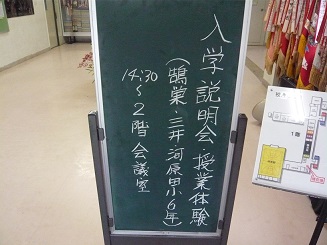 入学説明会 授業体験
(鵠巣・三井・河原田小6年)
14:30～2階 会議室
1階